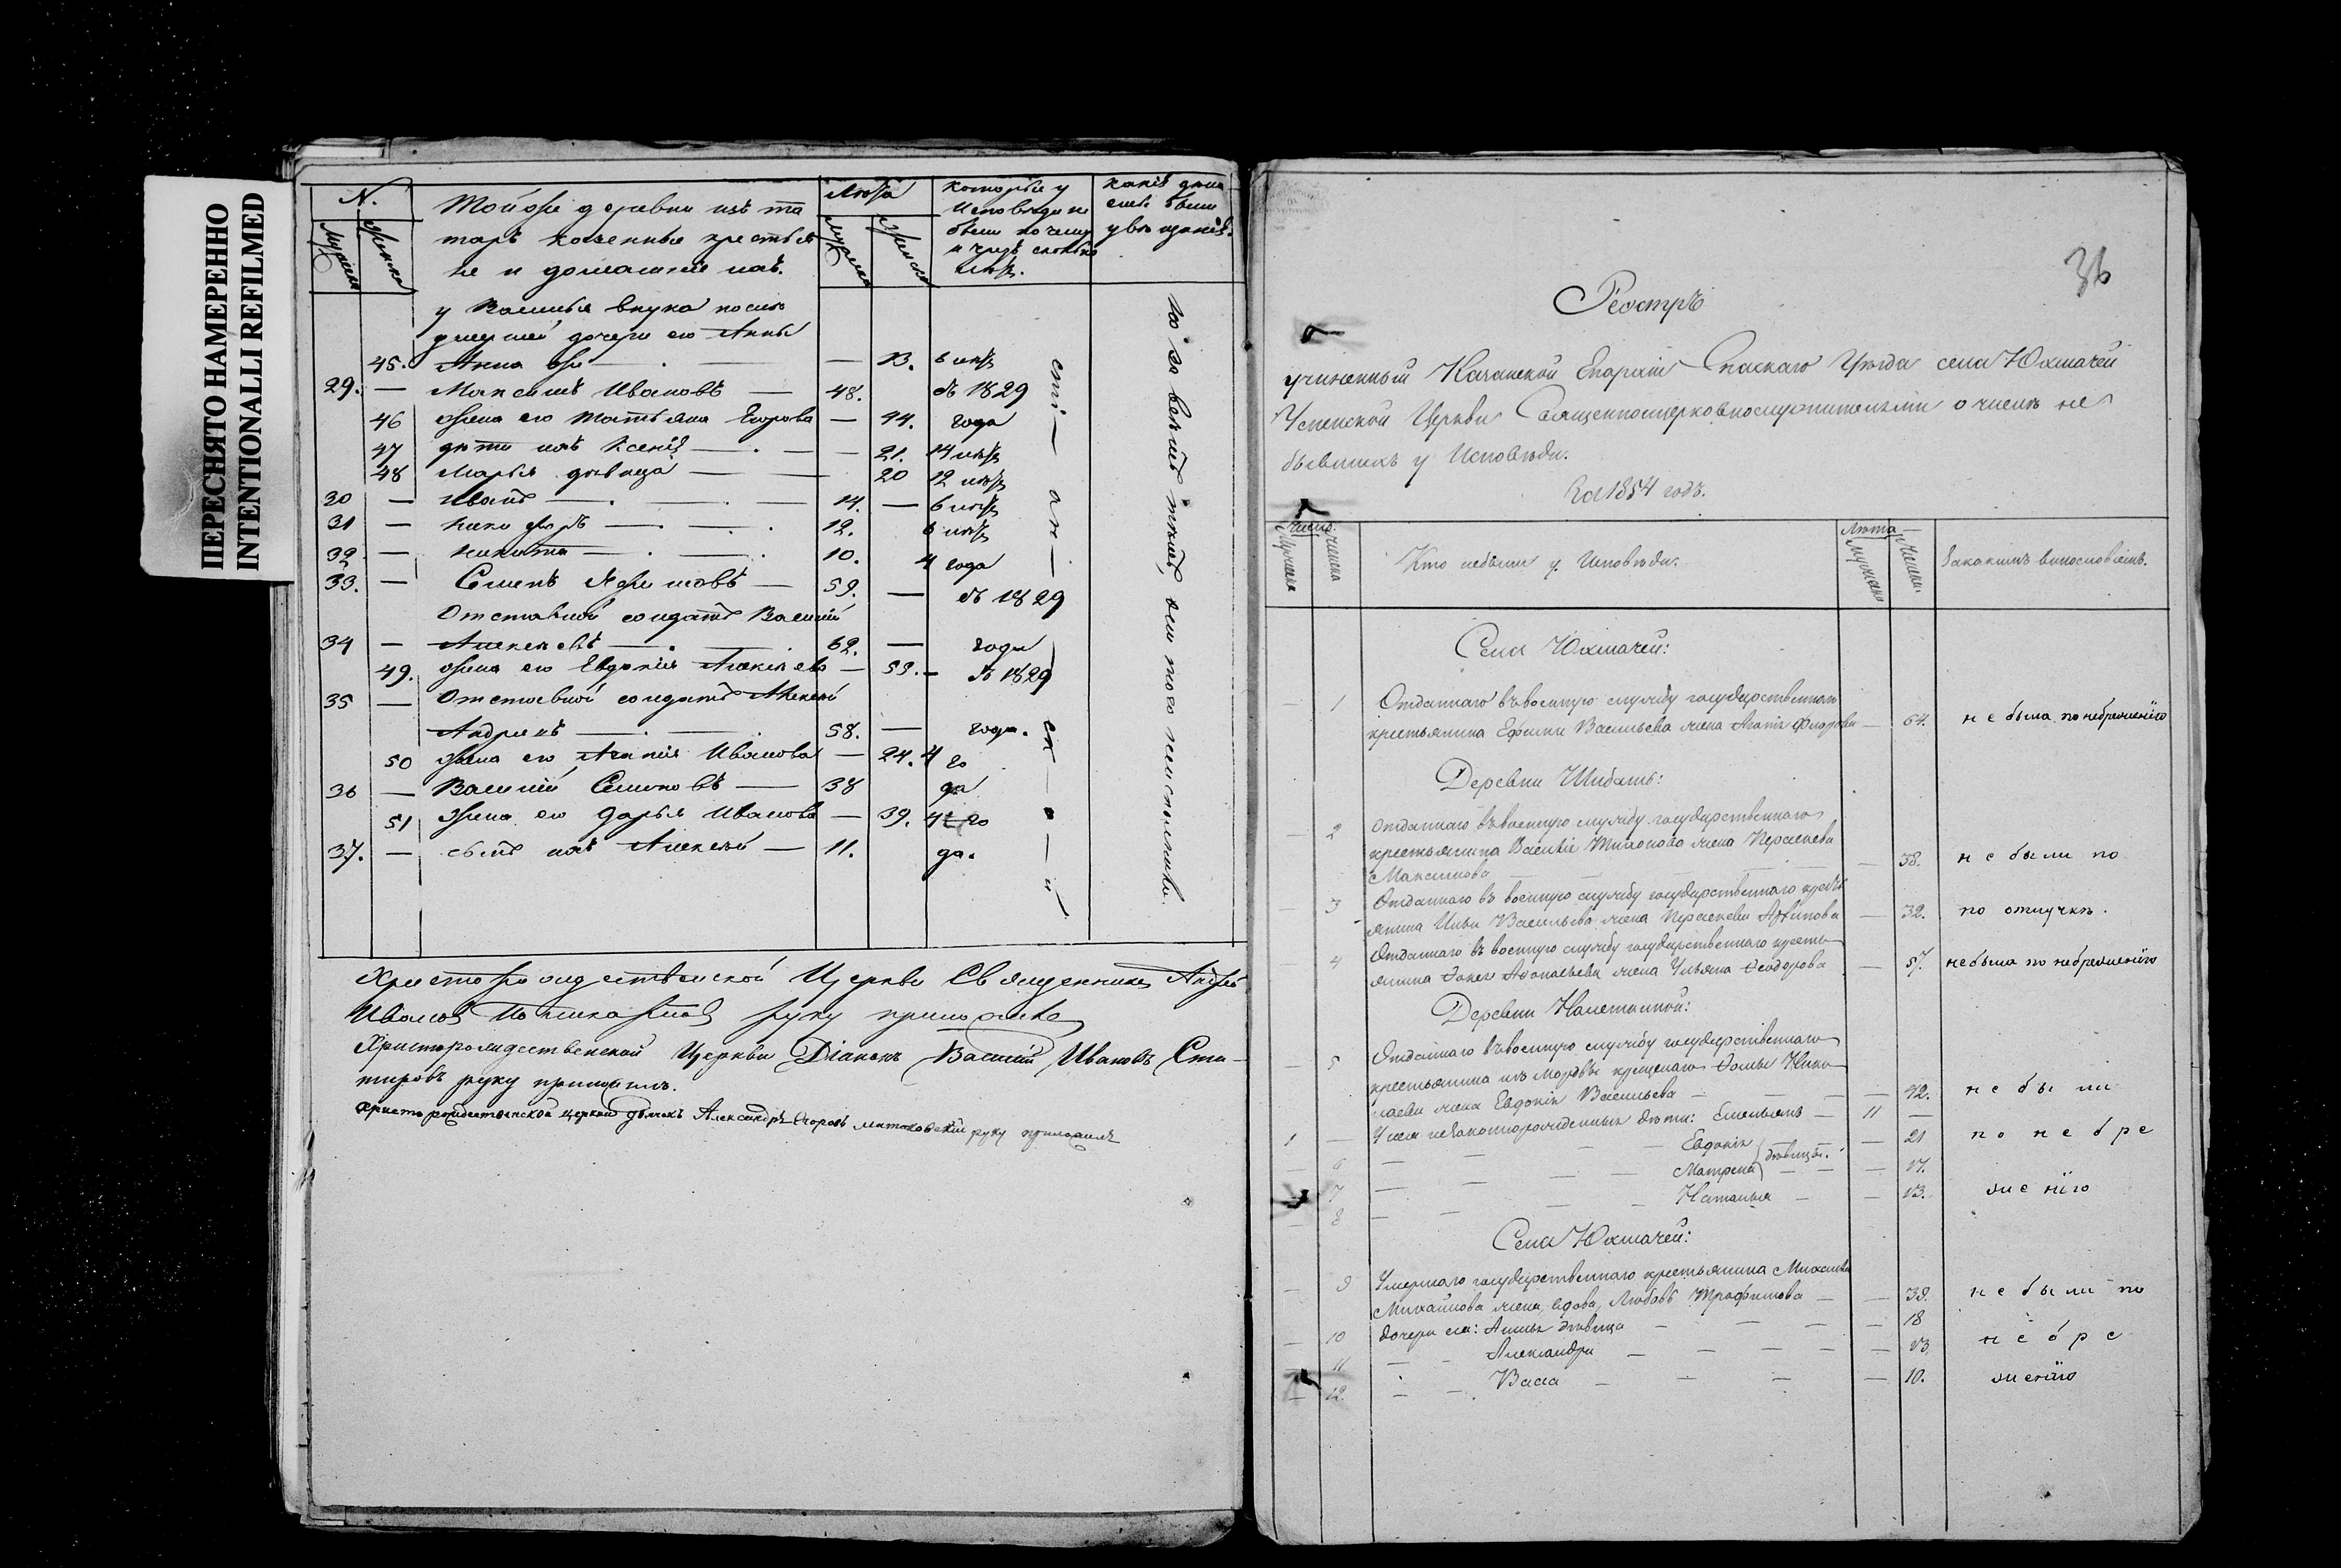 ПЕРЕСНЯТО НАМЕРЕННО
INTENTIONALLI REFILMED
N. Лѣта
Тойже деревни изъ та
таръ крестья
не и домашніе ихъ.
мужска женска
мужска женска
Которые у
Исповѣди не
были почему
и чрезъ сколько
лѣтъ.
у Василья внука после
умершей дочери его Анны
45. Анна — — 13. 6 лѣтъ
29. — Максимъ Ивановъ — 48. съ 1829
46 жена его Татьяна Егорова — 44. года
47 дѣти ихъ Ксенія — — 21. 14 лѣтъ
48 Марья дѣвица — 20 12 лѣтъ
30 — Иванъ — 14. — 6 лѣтъ
31 — Никифоръ — 12. 6 лѣтъ
32 — Никита — 10. 4 года
33. — Семенъ Ефимовъ — 59. — съ 1829
Отставной солдатъ Василій
34 — Алексеевъ — 62. — года
49. жена его Евдокія Алексеева — 53. — съ 1829
35 — Отставной солдатъ Алексей
Андреевъ — 58. — года.
50 жена его Агапія Иванова — 24. 4 го
36 — Василій Семеновъ — 38 да
51 жена его Дарья Иванова — 39. 4 го
37. — сынъ ихъ Алексей — 11. да.
Христорождественской Церкви Священникъ Андрей
Ивановъ руку приложилъ
Христорождественской Церкви Діаконъ Василій Ивановъ Ста-
тировъ руку приложилъ.
Христорождественской церкви дьячокъ Александръ Егоровъ руку приложилъ
36
Реэстръ
учиненный Казанской Епархіи Спаскаго Уѣзда села Юхмачей
Успенской Церкви Священноцерковнослужителями о числѣ не
бывшихъ у Исповѣди.
За 1854 годъ.
Число. Лѣта
мужска женска Кто небыли у Исповѣди. мужска женска За какимъ винословіемъ.
Села Юхмачей:
— 1 Отданнаго въ военную службу государственнаго
крестьянина Ефима Васильева жена Агапія Федорова — 64. не была по небреженію
Деревни Шибашъ:
— 2 Отданнаго въ военную службу государственнаго
крестьянина Василія Тихонова жена Прасковья
Максимова — 38. не были по
— 3 Отданнаго въ военную службу государственнаго кресть
янина Ильи Васильева жена Прасковья — 32. по отлучкѣ.
— 4 Отданнаго въ военную службу государственнаго кресть
янина жена Ульяна Феодорова — 57. небыла по небреженію
— 5 Отданнаго въ военную службу государственнаго
крестьянина изъ Мордвы крещенаго Фомы Нико
лаева жена Евдокія Васильева — — 42. не были
1 — У нея незаконорожденныя дѣти: Емельянъ — 11 —
— 6 — Евдокія дѣвицы. — 21 по небре
— 7 — Матрена — 17.
— 8 — Наталья — — 13. женію
Села Юхмачей:
— 9 Умершаго государственнаго крестьянина Михаила
Михайлова жена, вдова, Любовь Трофимова — — 39. не были по
— 10 дочери ея: дѣвица — — 18
— 11 — Александра — — 13. небре
— 12. — Васса — — 10. женію